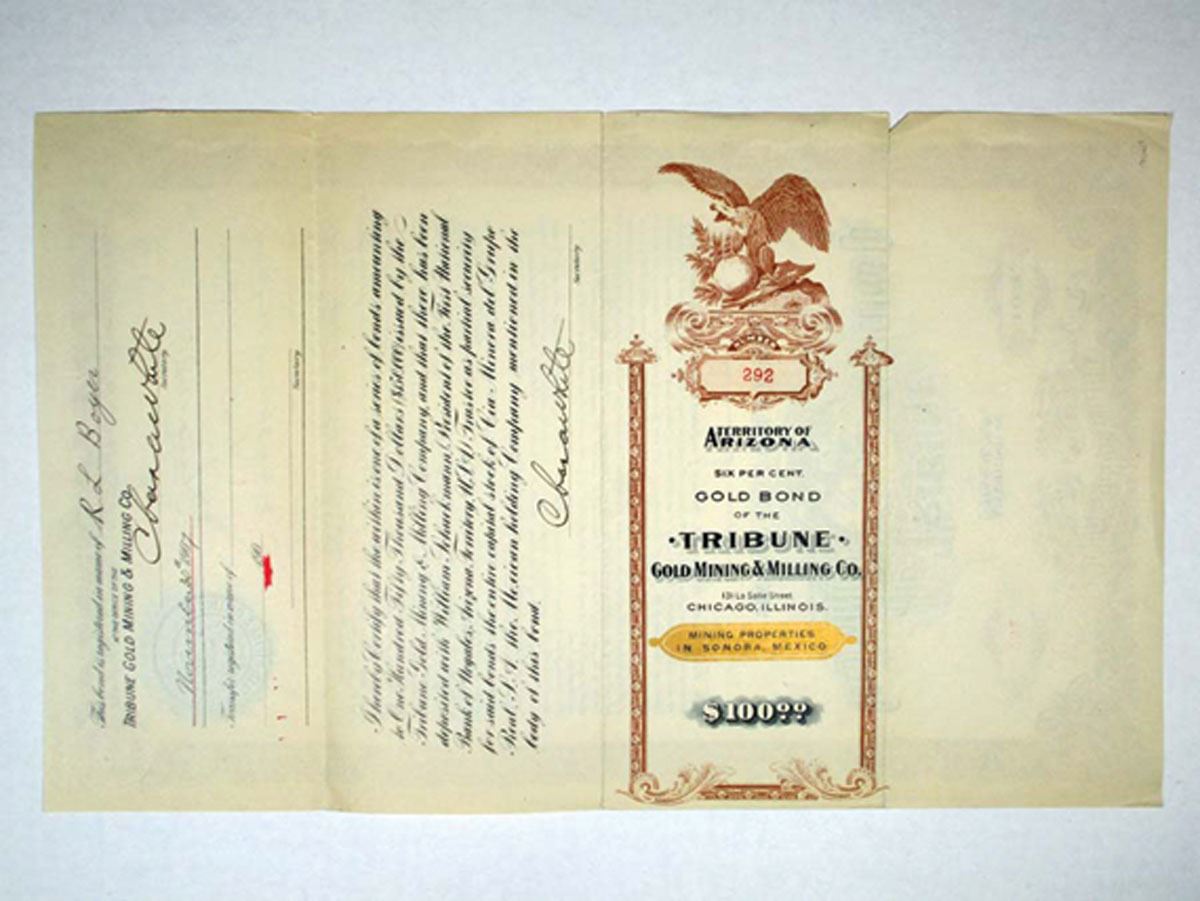 This bond is registered in name of R L Boyer
AT THE OFFICE OF THE
TRIBUNE GOLD MINING & MILLING CO.
Secretary
November 1907
Transfer registered in name of
190
Secretary
I hereby Certify that the within is one of a series of bonds amounting
to One Hundred Fifty Thousand Dollars ($150,000) issued by the
Tribune Gold Mining & Milling Company, and that there has been
deposited with William Schuckmann, President of the First National
Bank of Nogales, Arizona Territory, U.S.A. Trustee as partial security
for said bonds the entire capital stock of Cia. Minera del Grupo
Real, S. A. the Mexican holding Company mentioned in the
body of this bond.
Secretary
NUMBER
292
TERRITORY OF
ARIZONA
SIX PER CENT.
GOLD BOND
OF THE
TRIBUNE
GOLD MINING & MILLING CO.
131 La Salle Street
CHICAGO, ILLINOIS.
MINING PROPERTIES
IN SONORA, MEXICO
$100.00